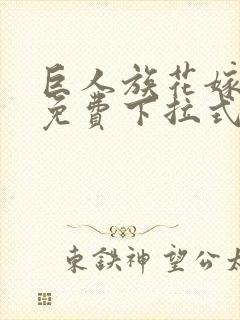 巨人族花嫁
免费下拉式
东鉄神望公太